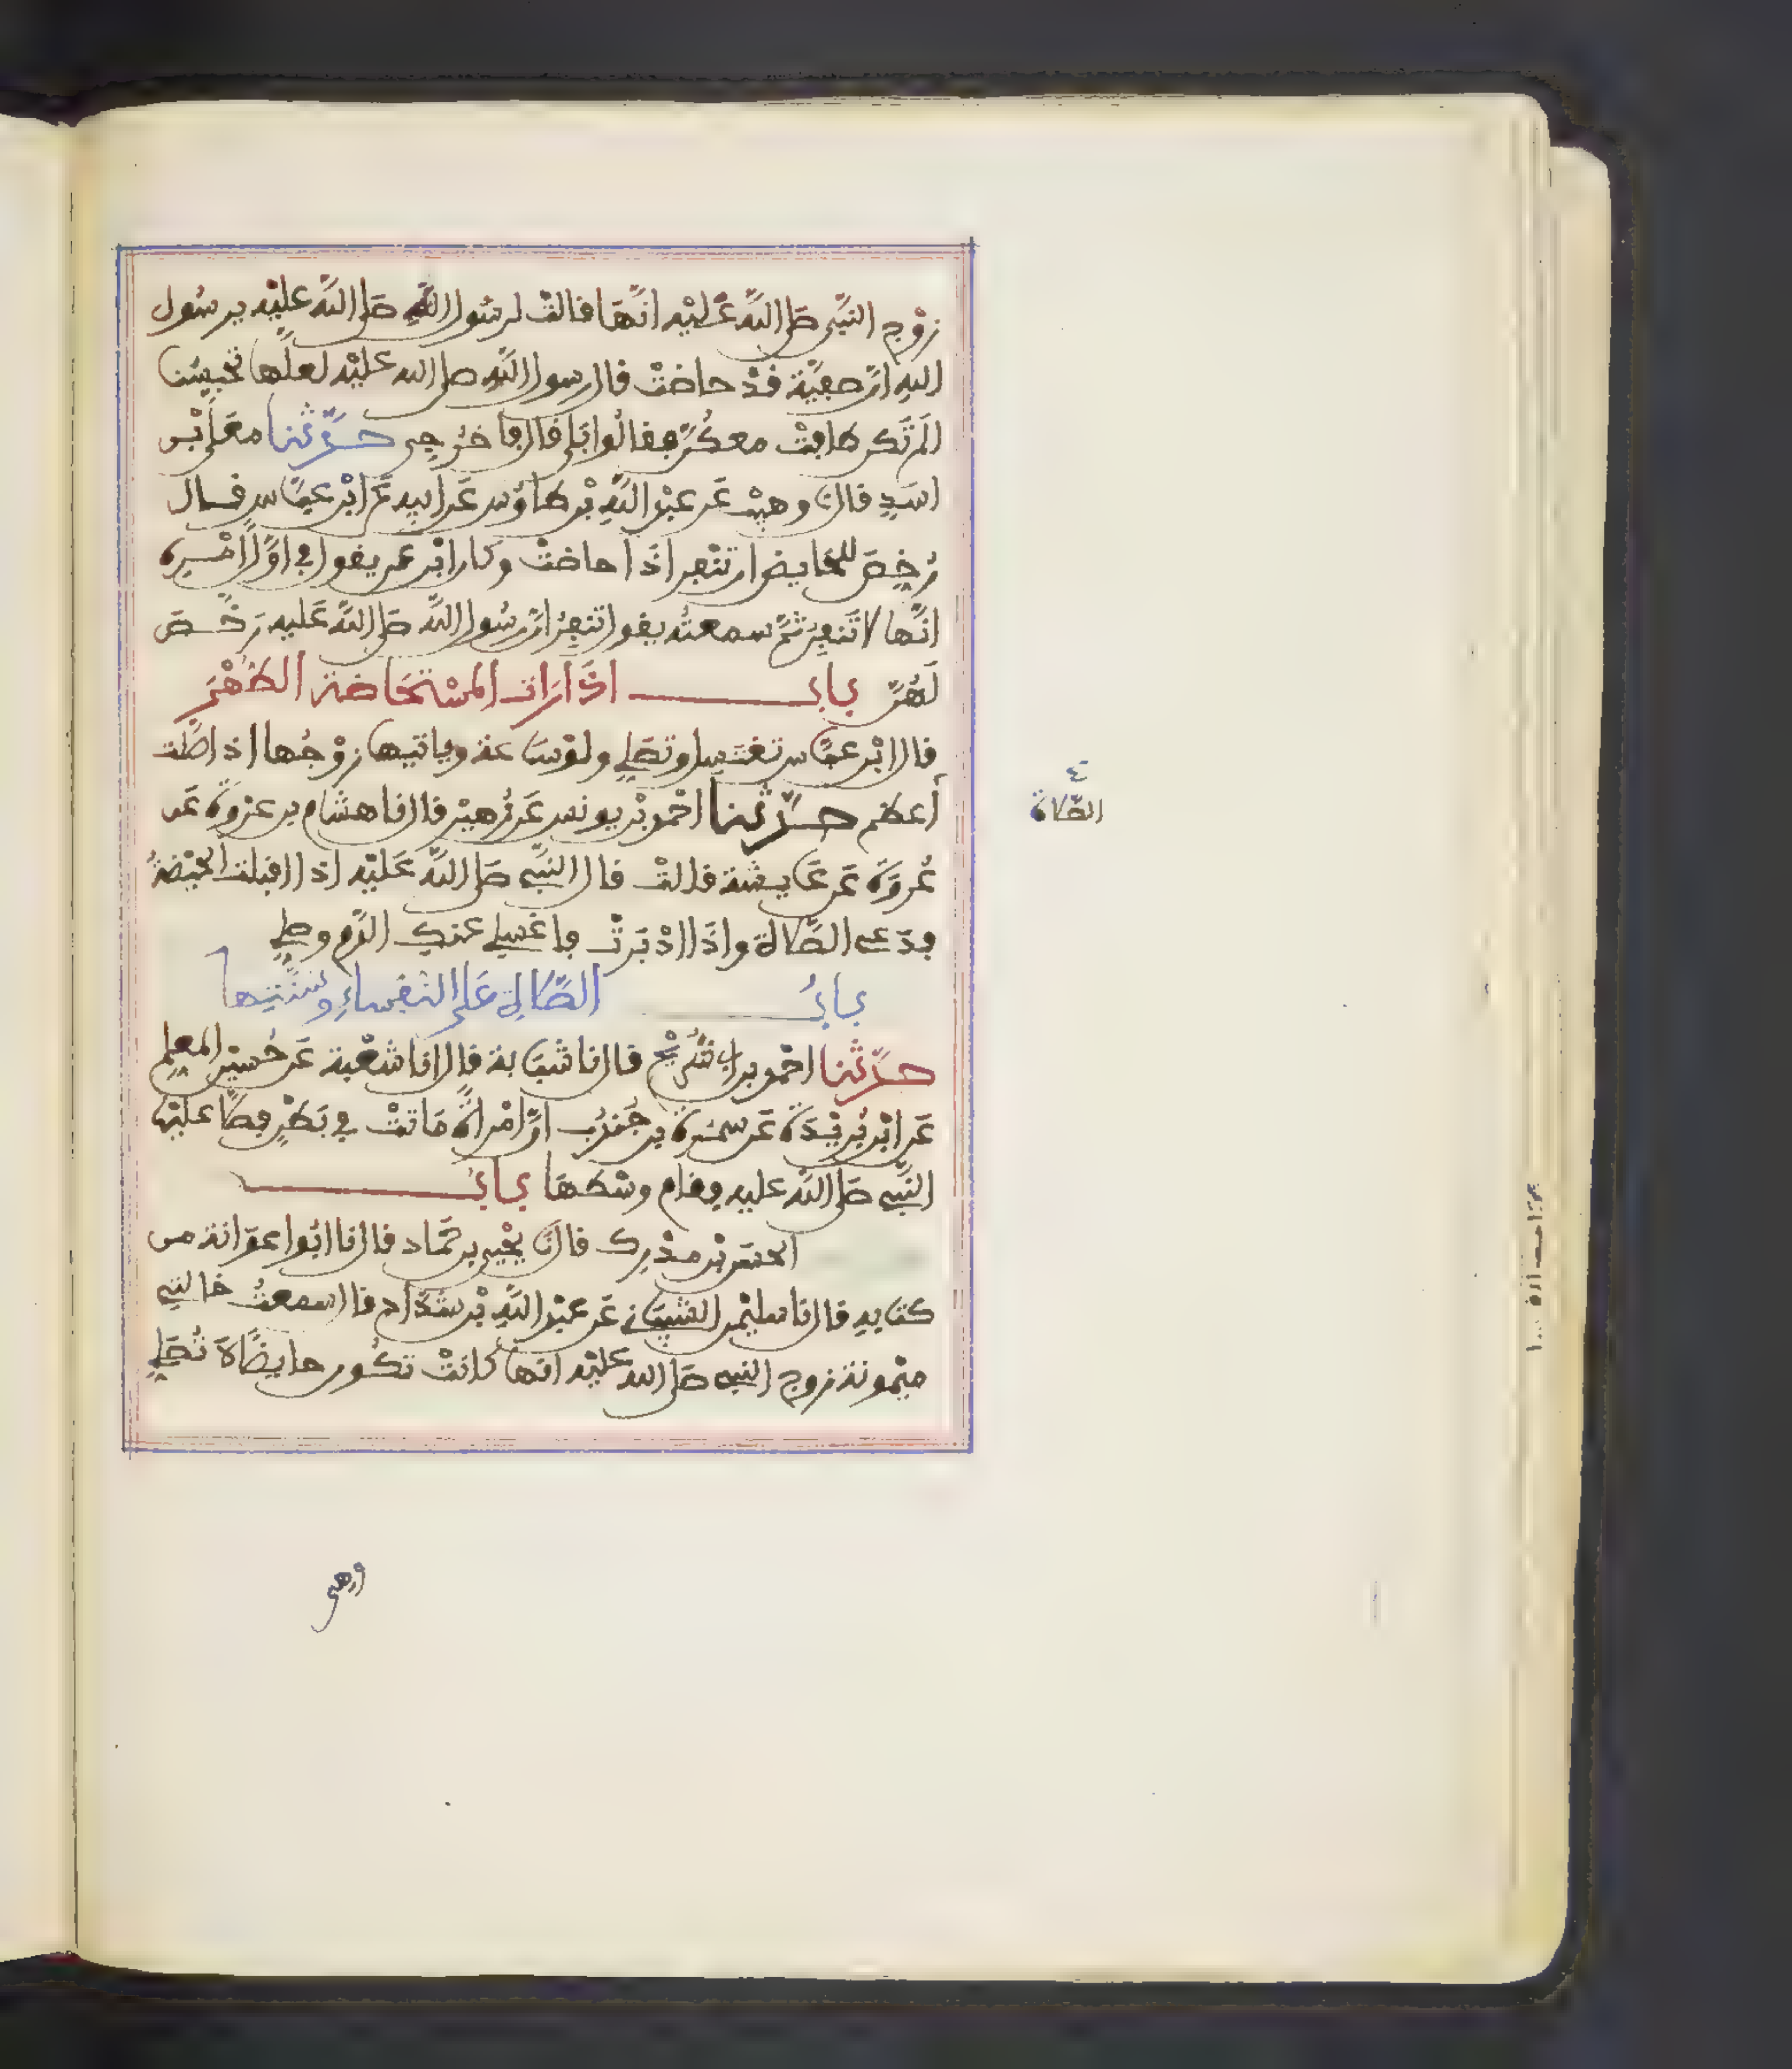 زوج النبي صلى الله عليه انها قالت لرسول الله صلى الله عليه يرسول
الله ان صفية قد حاضت قال رسول الله صلى الله عليه لعلها تحبسنا
الم تكن طافت معكن فقالوا بلى قال فاخرجي حدثنا معلى بن
اسد قال نا وهيب عن عبد الله بن طاوس عن ابيه عن ابن عباس قال
رخص للحايض ان تنفر اذا حاضت وكان ابن عمر يقول في اول امره
انها لا تنفر ثم سمعته يقول تنفر ان رسول الله صلى الله عليه رخص
لهن باب اذا رات المستحاضة الطهر
قال ابن عباس تغتسل وتصلي ولو ساعة وياتيها زوجها اذا صلت
الصلاة
أعظم حدثنا احمد بن يونس عن زهير قال نا هشام بن عروة عن
عروة عن عايشة قالت قال النبي صلى الله عليه اذا اقبلت الحيضة
فدعي الصلاة واذا ادبرت فاغسلي عنك الدم وصلي
باب الصلاة على النفساء وسنتها
حدثنا احمد بن ابي سريج قال انا شبابة قال انا شعبة عن حسين المعلم
عن ابن بريدة عن سمرة بن جندب ان امراة ماتت في بطن فصلا عليها
النبي صلى الله عليه فقام وسطها باب
الحسن بن مدرك قال نا يحيى بن حماد قال انا ابوا عوانة من
كتابه قال انا سليمن الشيباني عن عبد الله بن شداد قال سمعت خالتي
ميمونة زوج النبي صلى الله عليه انها كانت تكون حايضا لا تصلي
وهي